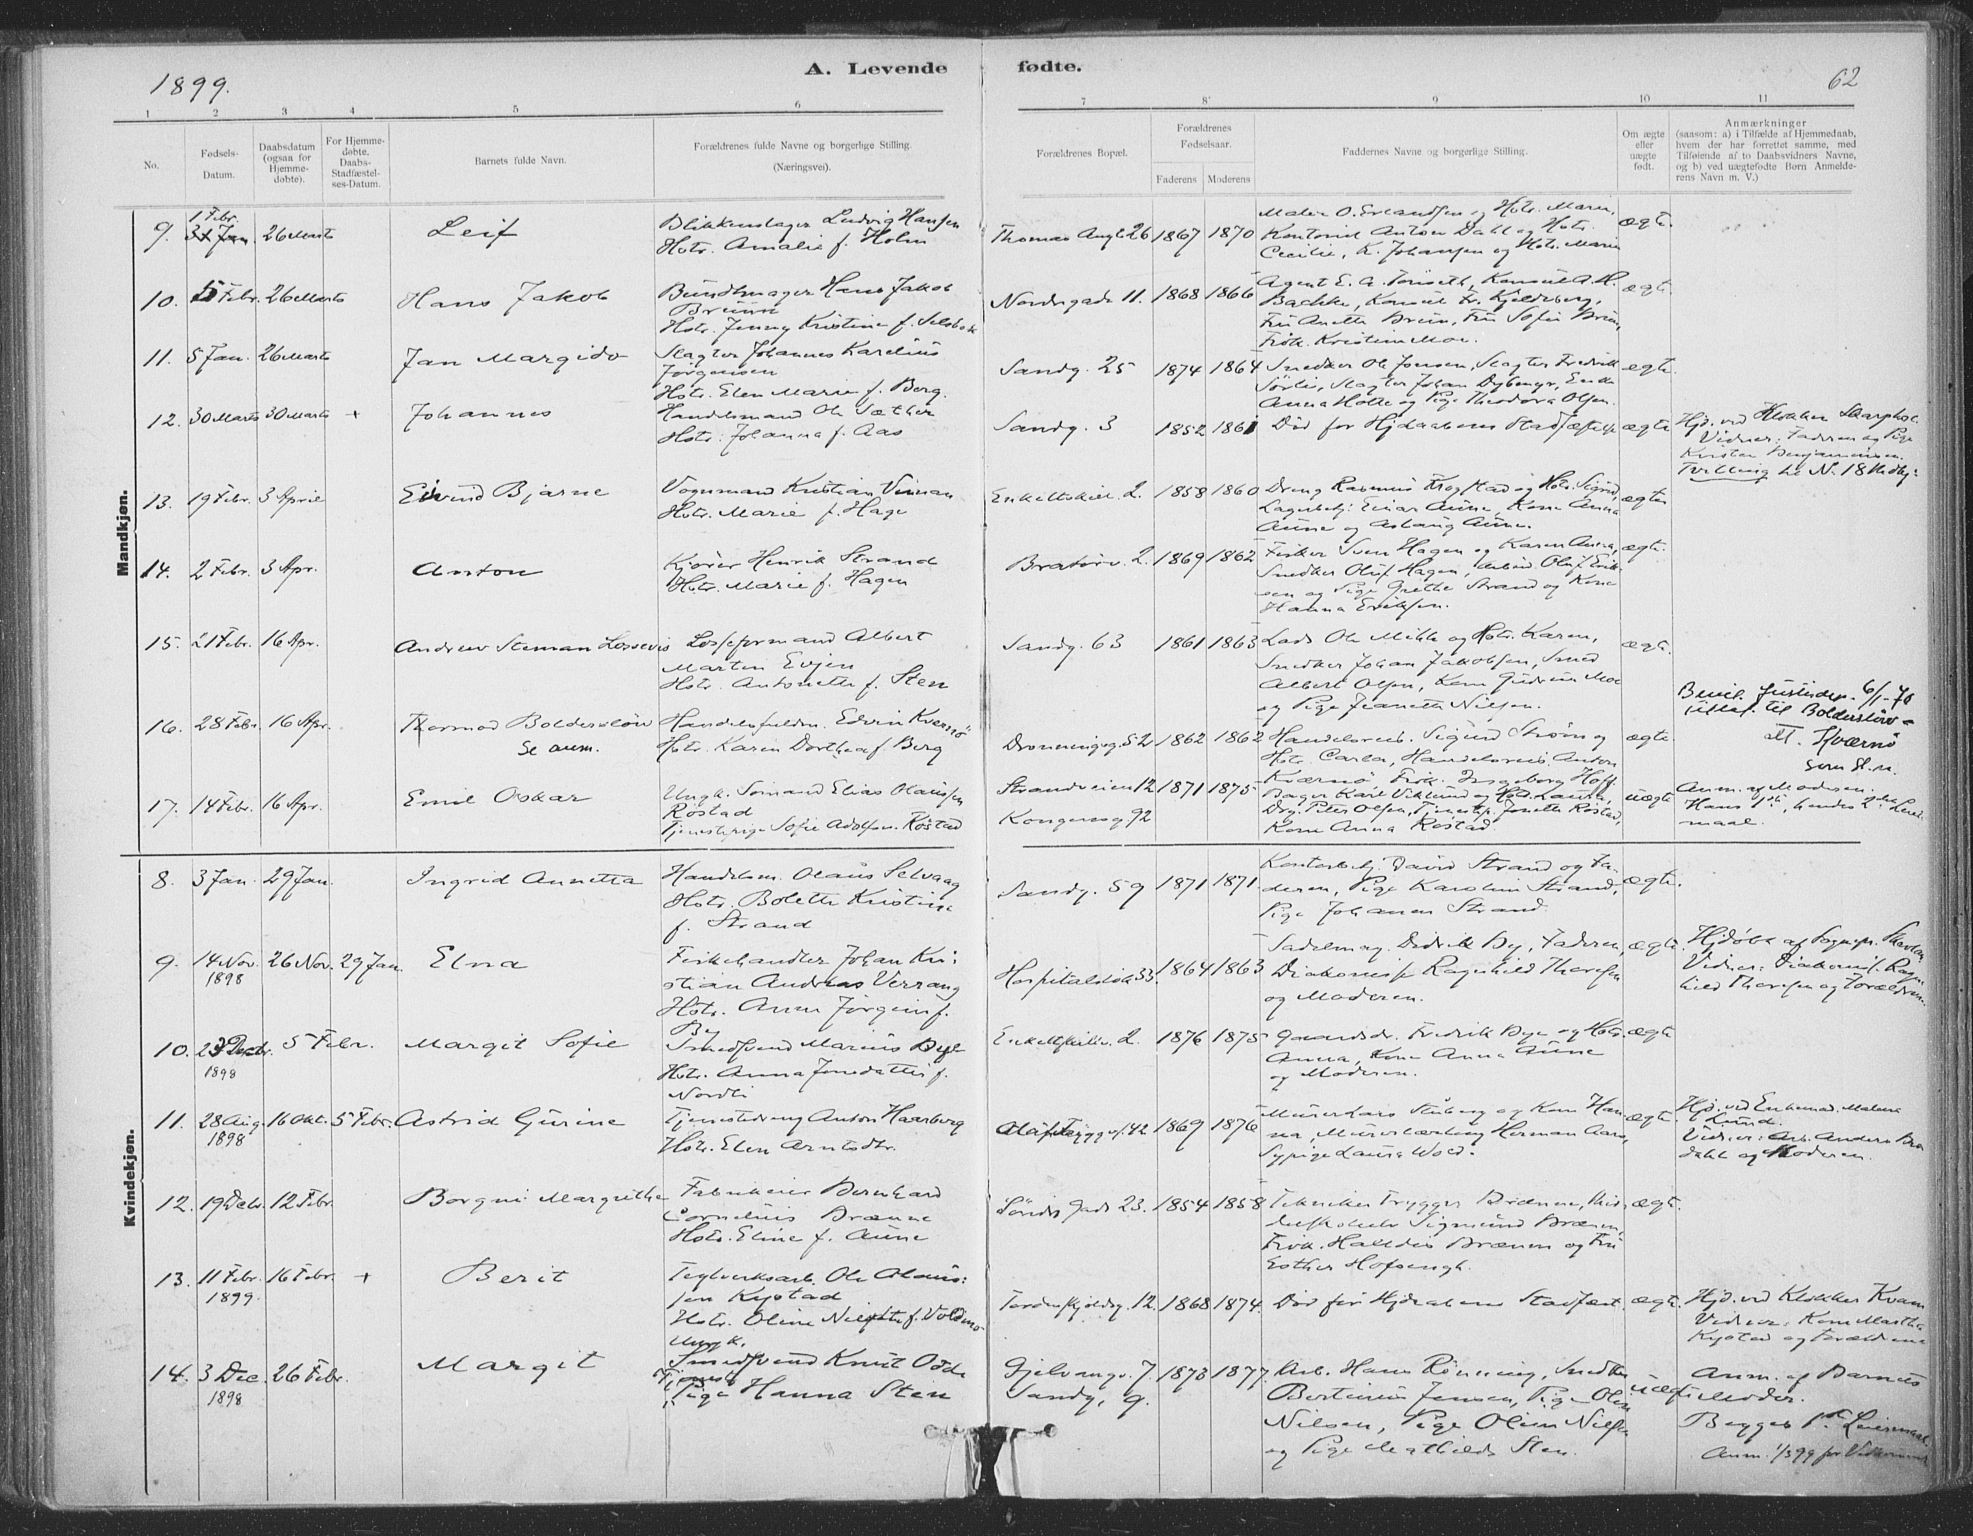 1899.
A. Levende fødte.
62
1 2 3 4 5 6 7 8 9 10 11
No.
Fødsels-Datum.
Daabsdatum (ogsaa for Hjemmedøbte).
For Hjemmedøbte. Daabs-Stadfæstelses-Datum.
Barnets fulde Navn.
Forældrenes fulde Navne og borgerlige Stilling.
(Næringsvei).
Forældrenes Bopæl.
Forældrenes Fødselsaar.
Faderens Moderens
Faddernes Navne og borgerlige Stilling.
Om ægte eller uægte født.
Anmærkninger
(saasom: a) i Tilfælde af Hjemmedaab, hvem der har forrettet samme, med Tilføiende af to Daabsvidners Navne, og b) ved uægtefødte Børn Anmelderens Navn m. V.)
Mandkjøn.
9. 1 Febr. 26 Marts Leif Blikkenslager Ludvig Hansen
Hstr. Amalie f. Holm
Thomas Angl. 26 1867 1870
Maler O. Erlandsen og Hstr. Maren,
Kontorist Anton Dahl og Hstr.
Cecilie, K. Johansen og Hstr. Marie
ægte.
10. 5 Febr. 26 Marts Hans Jakob Bundtmager Hans Jakob
Bruun
Hstr. Jenny Kristine f. Selsbak
Nordregade 11. 1868 1866
Bachke, Konsul Fr. Kjeldsberg,
Fru Anette Bruun, Fru Sofie Bruun,
Frøk. Kristine Moe.
ægte
11. 5 Jan. 26 Marts Jan Margido Slagter Johannes Karelius
Jørgensen
Hstr. Elen Marie f. Berg.
Sandg. 25 1874 1864
Snedker Ole Jonsen, Slagter Fredrik
Sørli, Slagter Johan Dybmyr, Enke
Anna Holte og Pige Theodora Olsen.
ægte.
12. 30 Marts 30 Marts + Johannes Handelsmand Ole Sæther
Hstr. Johanna f. Aas
Sandg. 3 1852 1861 Død før Hjdaabens Stadfæstelse ægte
Hjd. ved Klokker
Vidner: Faderen og Pige
Kirsten Benjaminsen.
Tvilling til No. 18
13. 19 Febr. 3 April Eivind Bjarne Vognmand Kristian
Hstr. Marie f. Hage
Enkeltskil. 2. 1858 1860
Dreng Rasmus Krogstad og Hstr. Sigrid,
Lagerbetj. Einar Aune, Kone Anna
Aune og Aslaug Aune.
ægte
14. 2 Febr. 3 Apr. Anton Kjører Henrik Strand
Hstr. Marie f. Hagen
Bratørv. 2. 1869 1862
Fisker Sven Hagen og Karen Anna,
Snedker Oluf Hagen, Arbeid. Oluf Erik-
sen og Pige Grethe Strand og Kone
Hanna Eriksen.
ægte.
15. 21 Febr. 16 Apr. Andreas Steman Lossevis Losseformand Albert
Martin Evjen
Hstr. Antonette f. Sten
Sandg. 63 1861 1863
Lods Ole Mikle og Hstr. Karen,
Snedker Johan Jakobsen, Smed
Albert Olsen, Kone Gudrun Moe
og Pige Jeanette Nilsen.
ægte.
16. 28 Febr. 16 Apr. Thormod Bolderslöw
Se anm.
Handelsfuldm. Edvin Kværnø
Hstr. Karen Dorthea f. Berg
Dronningsg. 52 1862 1862
Handelsreis. Sigurd Strøm og
Hstr. Carla, Handelsreis. Anton
Kværnø Frøk. Ingeborg Hoff
ægte
Bevil. 6/1-70
til Bolderslöw -
alt. Kværnø
som sl.n.
17. 14 Febr. 16 Apr. Emil Oskar Ungk. Sømand Elias Olaussen
Røstad
Tjenestpige Sofie Adolfsen Røstad
Strandveien 12 1871 1875
Kongensg 92
Bager Karl Viklund og Hstr. Laura,
Drg. Peter Olsen, Tjenestp. Jonetta Røstad,
Kone Anna Røstad.
uægte
Anm. af Moderen.
Hans 1ste, hendes 2det Leier-
maal.
Kvindekjøn.
8. 3 Jan. 29 Jan. Ingrid Annetta Handelsm. Olaus Selvaag
Hstr. Bolette Kristine
f. Strand
Sandg. 59 1871 1871.
Kontorbetj David Strand og Fa-
deren, Pige Karoline Strand,
Pige Johanna Strand.
ægte.
9. 14 Nov. 1898 26 Nov. 29 Jan. Elna Fiskehandler Johan Kri-
stian Andreas Verrang
Hstr. Anna Jørgine f.
By
Hospitalsløk. 33. 1864 1863
Sadelmag. Didrik By, Faderen,
Diakonisse Ragnhild Thoresen
og Moderen.
ægte.
Hjdøbt af Sognepr.
Vidner: Diakoniss. Ragn-
hild Thoresen og Forældrene.
10. 5 Febr. Margit Sofie
1898
Smedsvend Marius Bye
Hstr. Anna Jonsdatter f.
Nordli
Enkeltskilv. 2. 1876 1875
Gaardsdr. Fredrik Bye og Hstr.
Anna, Kone Anna Aune
og Moderen.
ægte
11. 28 Aug. 1898 16 Okt. 5 Febr. Astrid Gurine Tjenestedreng Anton Haarberg
Hstr. Elen Arntsdtr.
Olaf Trygv. 42 1869 1876
Murer Lars Stuberg og Kone Han-
na, Murerlærling Herman Aaro,
Sypige Laura Wold.
ægte
Hjd. ved Enkemad. Malena
Lund.
Vidner: Arb. Anders Bra
dahl og Moderen.
12. 19 Decb. 12 Febr. Borgni Margrethe Fabrikeier Bernhard
Cornelius Brænne
Hstr. Eline f. Aune
Søndre Gade 23. 1854 1858
Tekniker Trygge Brænne,
Sigmund Brænne,
Frøk. Halldis Brænne og Fru
Esther Hofsengh.
ægte.
13. 11 Febr. 1899. 16 Febr. + Berit Teglverksarb. Ole Olaus-
sen Kystad
Hstr. Oline Nilsdtr f. Voldmo
Tordenskjoldsg. 12. 1868 1874. Død før Hjdaabens Stadfæst. ægte.
Hjd. ved Klokker Kvam
Vidner: Kone Martha
Kystad og Forældrene
14. 3 Dec. 1898 26 Febr. Margit Ungk.
Smedsvend Knut Odde
Tjeneste
Pige Hanna Sten
Gjelvangv. 7. 1873 1877.
Sandg. 9.
Arb. Hans Rønning, Snedker
Bertinius Jensen, Pige Oline
Nilsen, Pige Oline Nilsen
og Pige Mathilde Sten.
uægte
Anm. af Barnets
Moder.
Begges 1ste Leiermaal.
Anm. 1/3 99 for